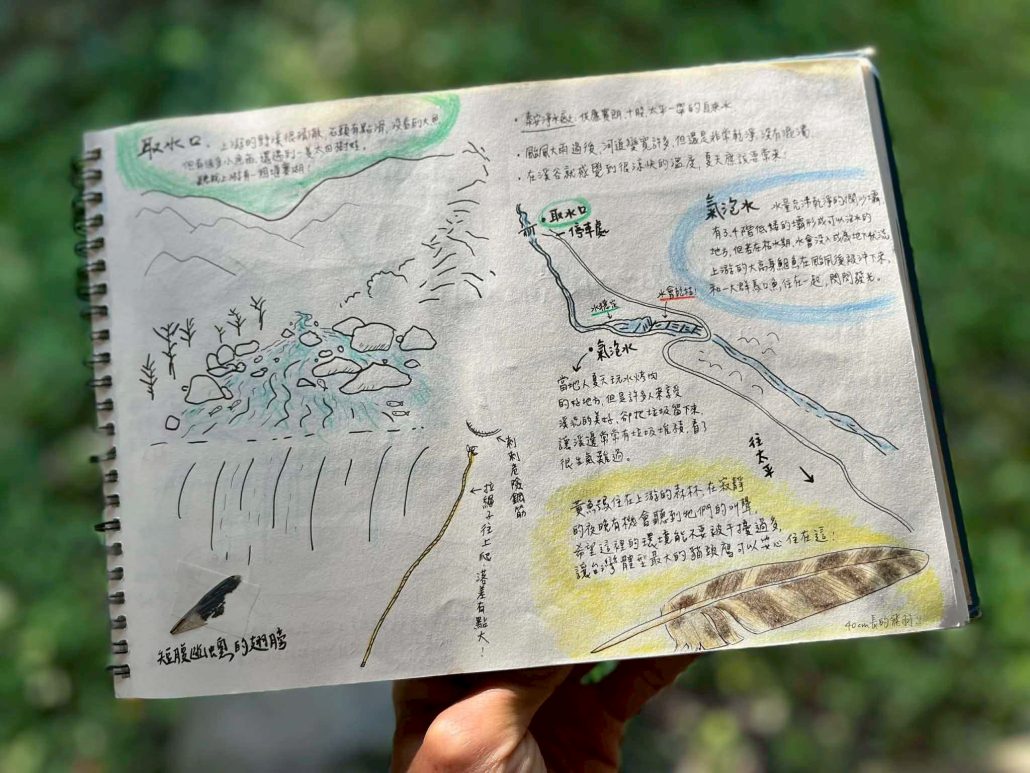 取水口、上游的野溪很清澈,石頭有點滑,沒看到大魚
但有很多小魚苗,還遇到一隻大田鱉!
聽說上游有一個堰塞湖!
刺刺危險鋼筋
拉繩子往上爬 落差有點大!
短腹幽蟌的翅膀
供應 十股、太平一帶的自來水
颱風大雨過後,河道變寬許多,但還是非常乾淨沒有混濁
在溪谷就感覺到很涼快的溫度,夏天應該很常來!
取水口
停車處
氣泡水 水量充沛乾淨的攔沙壩,
有3、4階低矮的壩形成可以泡水的
地方,但若在枯水期,水會沒入成為地下伏流
上游的大高身鯝魚在颱風後被沖下來,
和一大群馬口魚住在一起,閃閃發光。
水穩定
水會乾枯!
氣泡水
當地人夏天玩水烤肉
的好地方,但是許多人來享受
溪流的美好,卻把垃圾留下來,
讓溪邊常常有垃圾堆積,看了
很生氣難過。
往太平
黃魚鴞住在上游的森林,在寂靜
的夜晚有機會聽到牠們的叫聲,
希望這裡的環境能不要被干擾過多,
讓台灣體型最大的貓頭鷹可以安心住在這!
40cm長的飛羽!